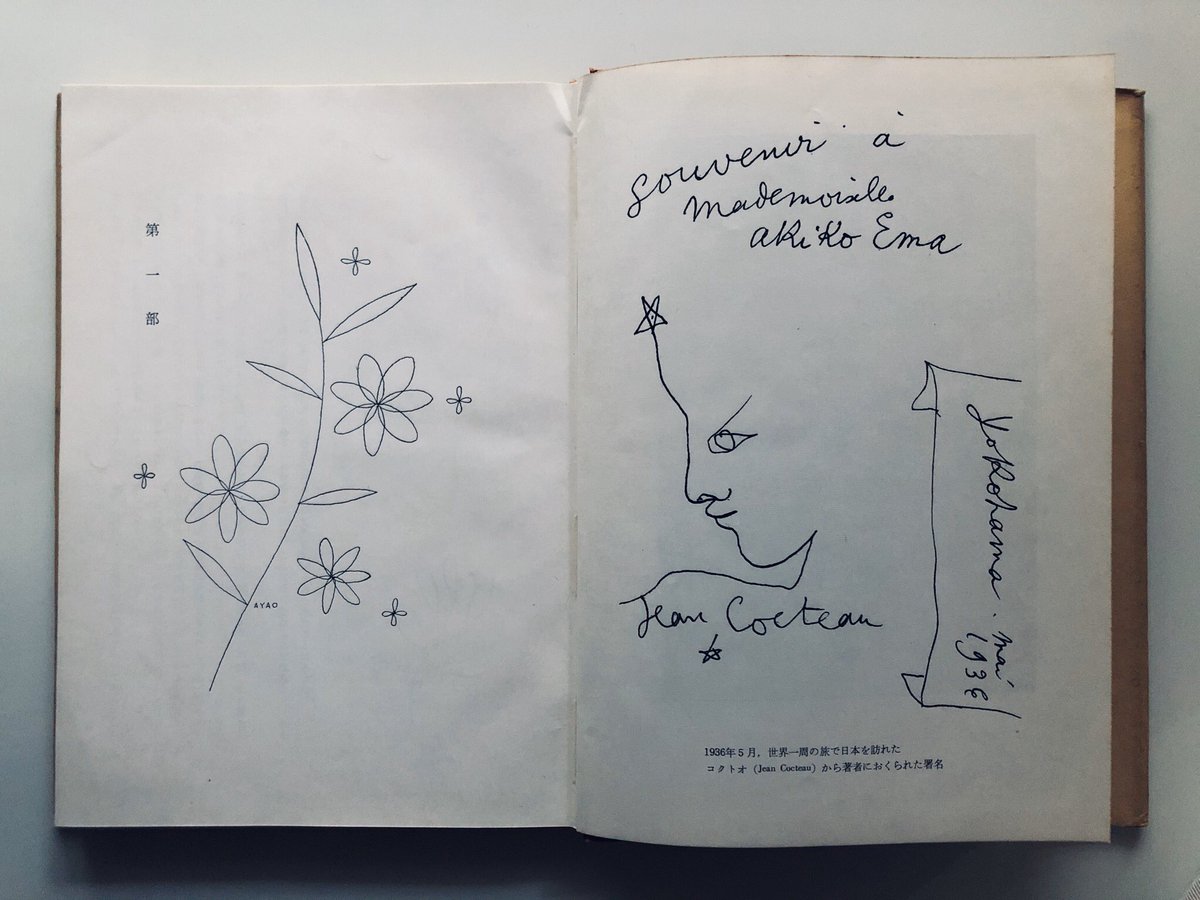 第一部
AYAO
souvenir à
Mademoiselle
akiko Ema
Jean Cocteau
Yokohama. mai
1936
1936年5月，世界一周の旅で日本を訪れた
コクトオ (Jean Cocteau) から著者におくられた署名